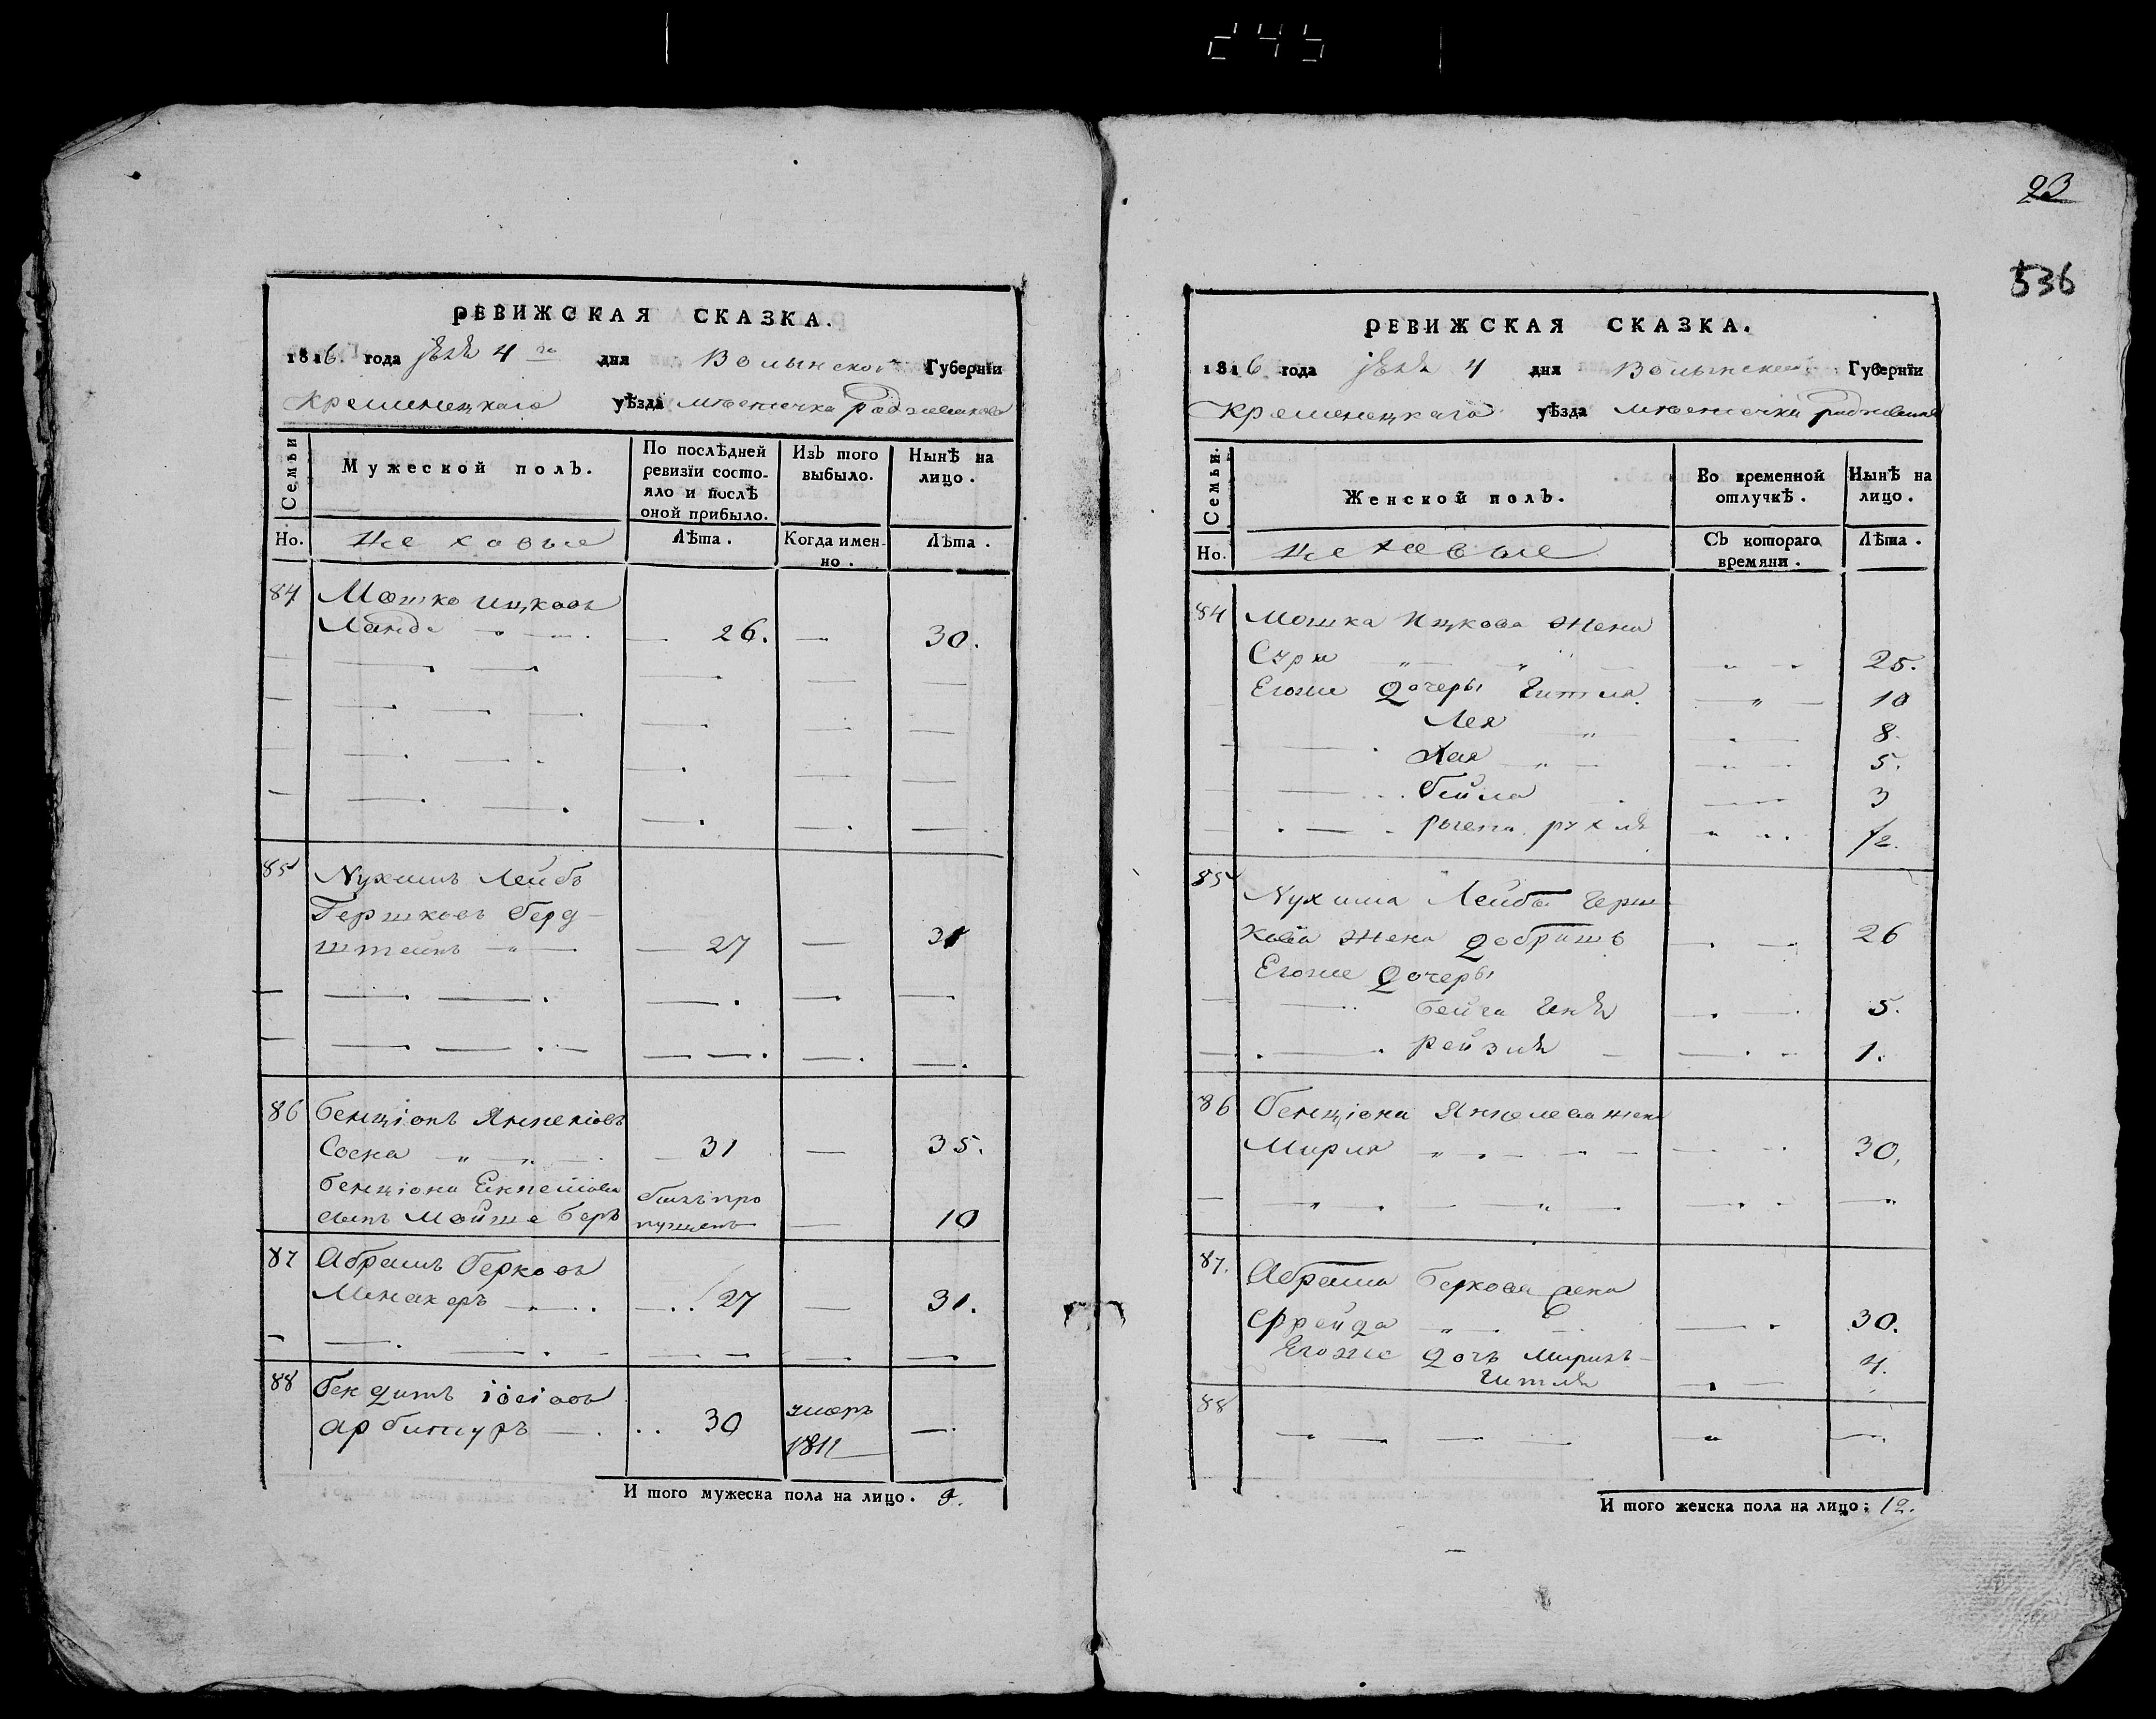 245
23
536
РЕВИЖСКАЯ СКАЗКА.
1816. года 4 го дня Волынской Губернїи
Кременецкаго уѣзда местечка радзивилова
Семьи
Мужеской полъ.
По послѣдней ревизїи состо-
яло и послѣ оной прибыло.
Изъ того выбыло.
Нынѣ на лицо.
Но.
Лѣта.
Когда имен-
но.
Лѣта.
84 Мошко Ицковъ
Ланда 26. 30.
85 Нухимъ Лейбъ
Гершковъ
штейнъ 27 31
86 бенціонъ Янкелювъ
Соска 31 35.
бенціона
сынъ Мойше беръ 10
былъ про
пущенъ
87 Абрамъ берковъ
Минакеръ 27 31.
88 бендитъ
арбитуръ 30 умеръ
1811
И того мужеска пола на лицо.
РЕВИЖСКАЯ СКАЗКА.
1816 года 4 дня Волынской Губернїи
Кременецкаго уѣзда местечки радзивилова
Семьи.
Женской полъ.
Во временной отлучкѣ.
Нынѣ на лицо.
Но.
Съ котораго времяни.
Лѣта.
84 Мошка Ицкова жена
Сура 25.
Егоже дочеры Гитля 10
Лея 8
Хая 5.
бейла 3
рухля 1/2.
85 Нухима Лейбы Герш
кова жена добришъ 26
Егоже дочеры
5.
рейзля 1.
86 бенціона Янкелева жена
Мирля 30.
87. Абрама беркова жена
Фрейда 30.
Егоже дочъ
Гитля 4.
88
И того женска пола на лицо: 12.